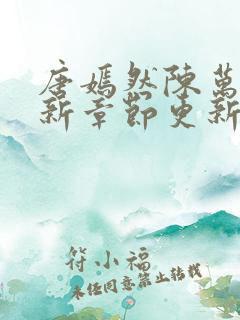 唐嫣然陳萬
新章節更新
符小福
未经同意禁止转载